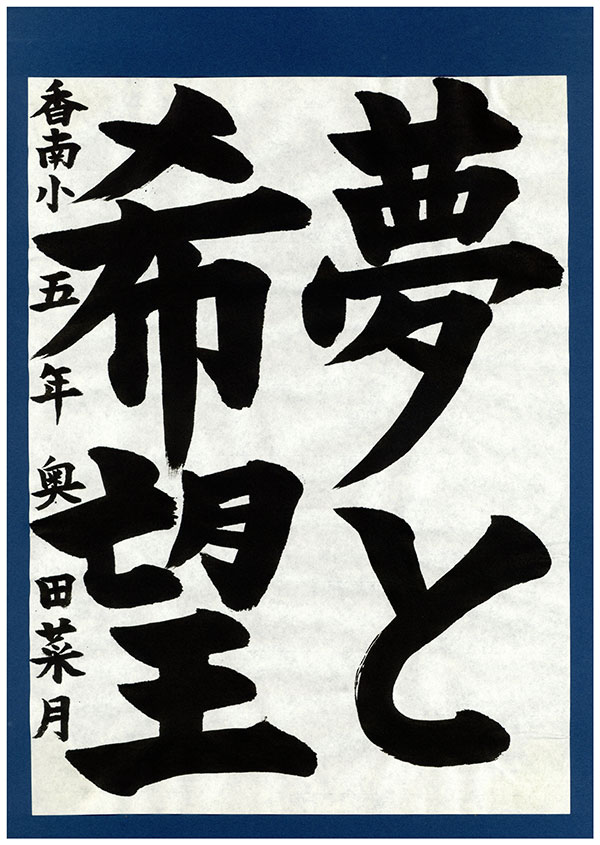 夢と
希望
香南小 五年 奥田菜月